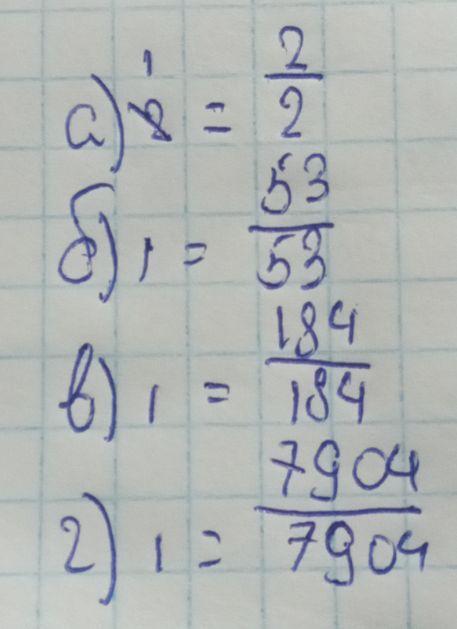 а) 1 = 2/2
б) 1 = 53/53
в) 1 = 184/184
г) 1 = 7904/7904